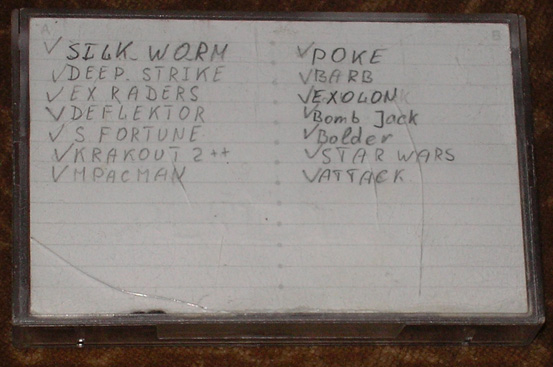 A
✓ SILK WORM
✓ DEEP. STRIKE
✓ EX RADERS
✓ DEFLEKTOR
✓ S FORTUNE
✓ KRAKOUT 2++
✓ MPACMAN
B
✓ POKE
✓ BARB
✓ EXOLON
✓ Bomb Jack
✓ Bolder
✓ STAR WARS
✓ ATTACK